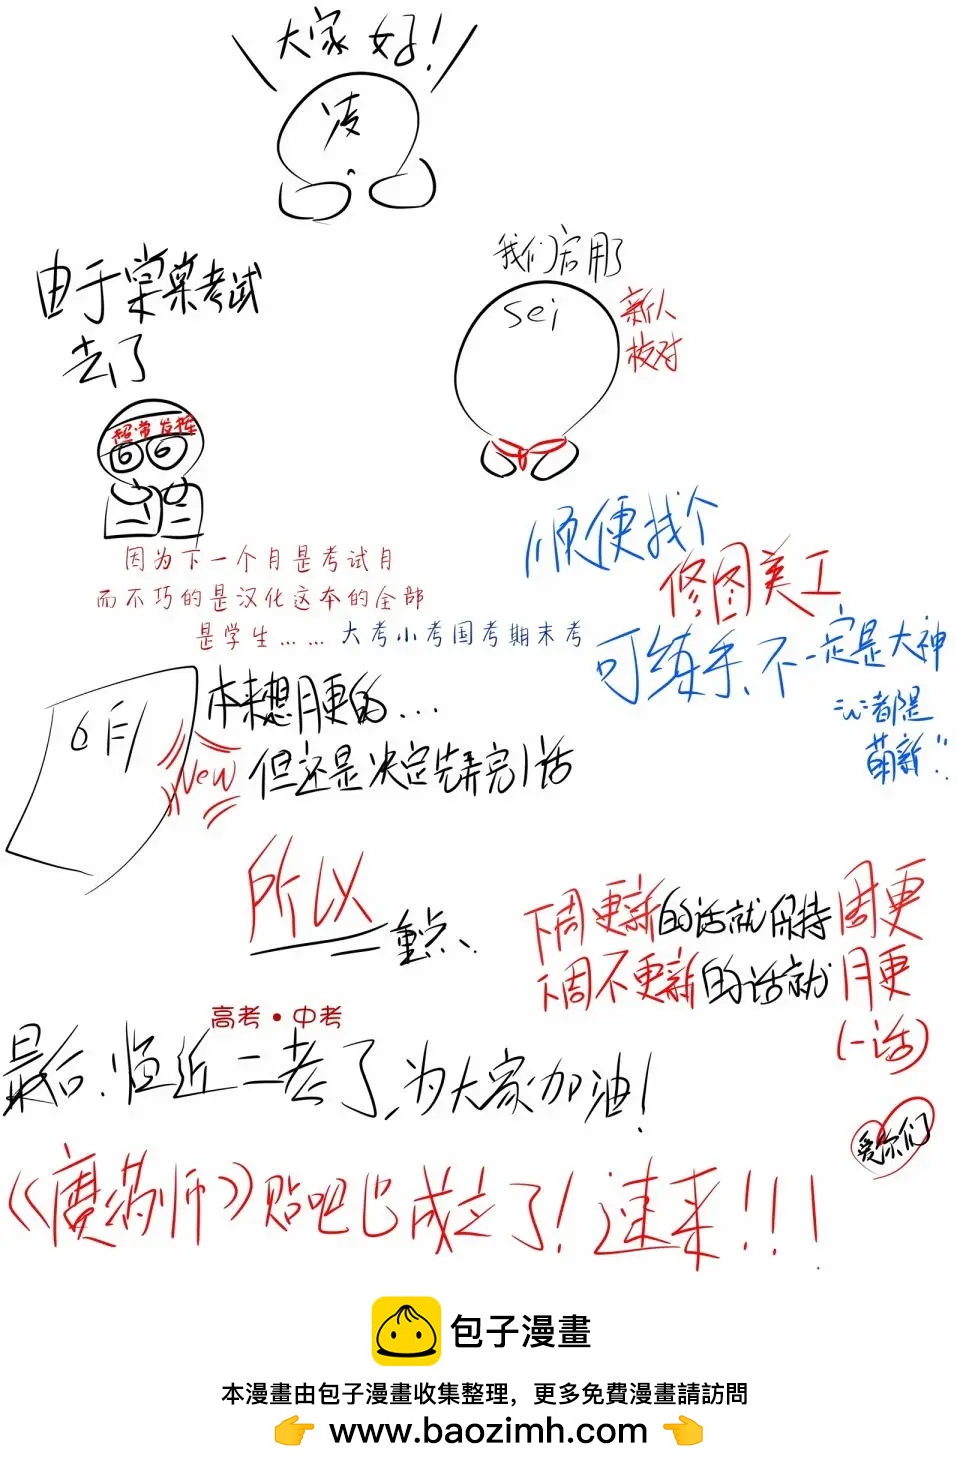 大家好!
凌
由于棠棠考试
去了
我们启用了
sei
新人
校对
超常发挥
因为下一个月是考试月
而不巧的是汉化这本的全部
是学生……大考小考国考期末考
顺便找个
修图美工
可练手、不一定是大神
都是
萌新
6月
New
本来想月更的...
但还是决定先弄完1话
所以
重点、
下周更新的话就保持周更
下周不更新的话就月更
(一话)
高考·中考
最后、临近二考了、为大家加油!
爱你们
《魔药师》贴吧已成立了!速来!!!
包子漫畫
本漫畫由包子漫畫收集整理,更多免費漫畫請訪問
👉 www.baozimh.com 👈